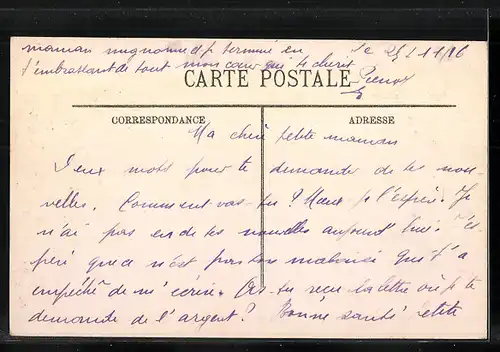 Le 25/11/16
CARTE POSTALE
CORRESPONDANCE
ADRESSE
Ma chère petite maman
Deux mots pour te demander de tes nou-
velles. Comment vas-tu? Mieux je l'espère. Je
n'ai pas eu de tes nouvelles aujourd'hui. J'es-
père que ce n'est pas ton qui t'a
empêché de m'écrire. As-tu reçu la lettre où je te
demande de l'argent? Bonne santé petite
maman mignonne et je termine en
t'embrassant de tout mon cœur qui te chérit